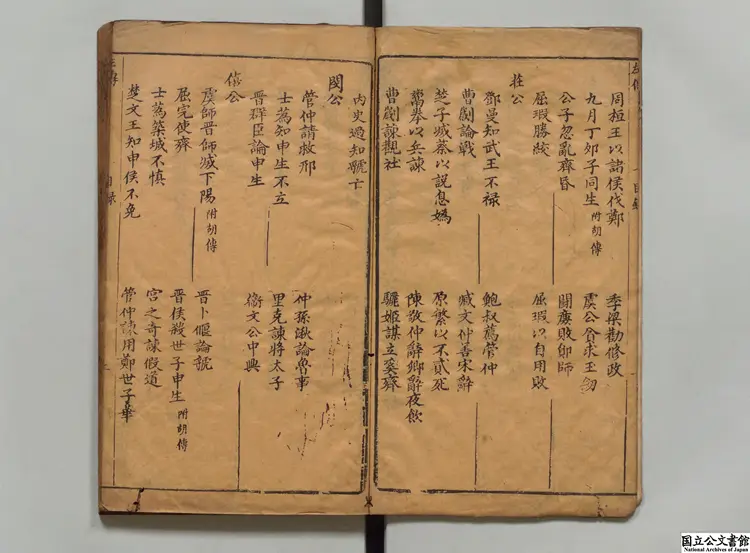 左傳 目錄
周桓王以諸侯伐鄭 季梁勸修政
九月丁卯子同生 附胡傳 虞公貪求玉劍
公子忽亂齊昏 鬭廉敗鄖師
屈瑕勝絞 屈瑕以自用敗
莊公
鄧曼知武王不祿 鮑叔薦管仲
曹劌論戰 臧文仲善宋辭
楚子滅蔡以說息媯 原繁以不貳死
鬻拳以兵諫 陳敬仲辭卿辭夜飲
曹劌諫觀社 驪姬謀立奚齊
內史過知虢亡
閔公
管仲請救邢 仲孫湫論魯事
士蒍知申生不立 里克諫將太子
晉群臣論申生 衛文公中興
僖公
虞師晉師滅下陽 附胡傳 晉卜偃論虢
屈完使齊 晉侯殺世子申生 附胡傳
士蒍築城不慎 宮之奇諫假道
楚文王知申侯不免 管仲諫用鄭世子華
左傳 目錄
国立公文書館
National Archives of Japan